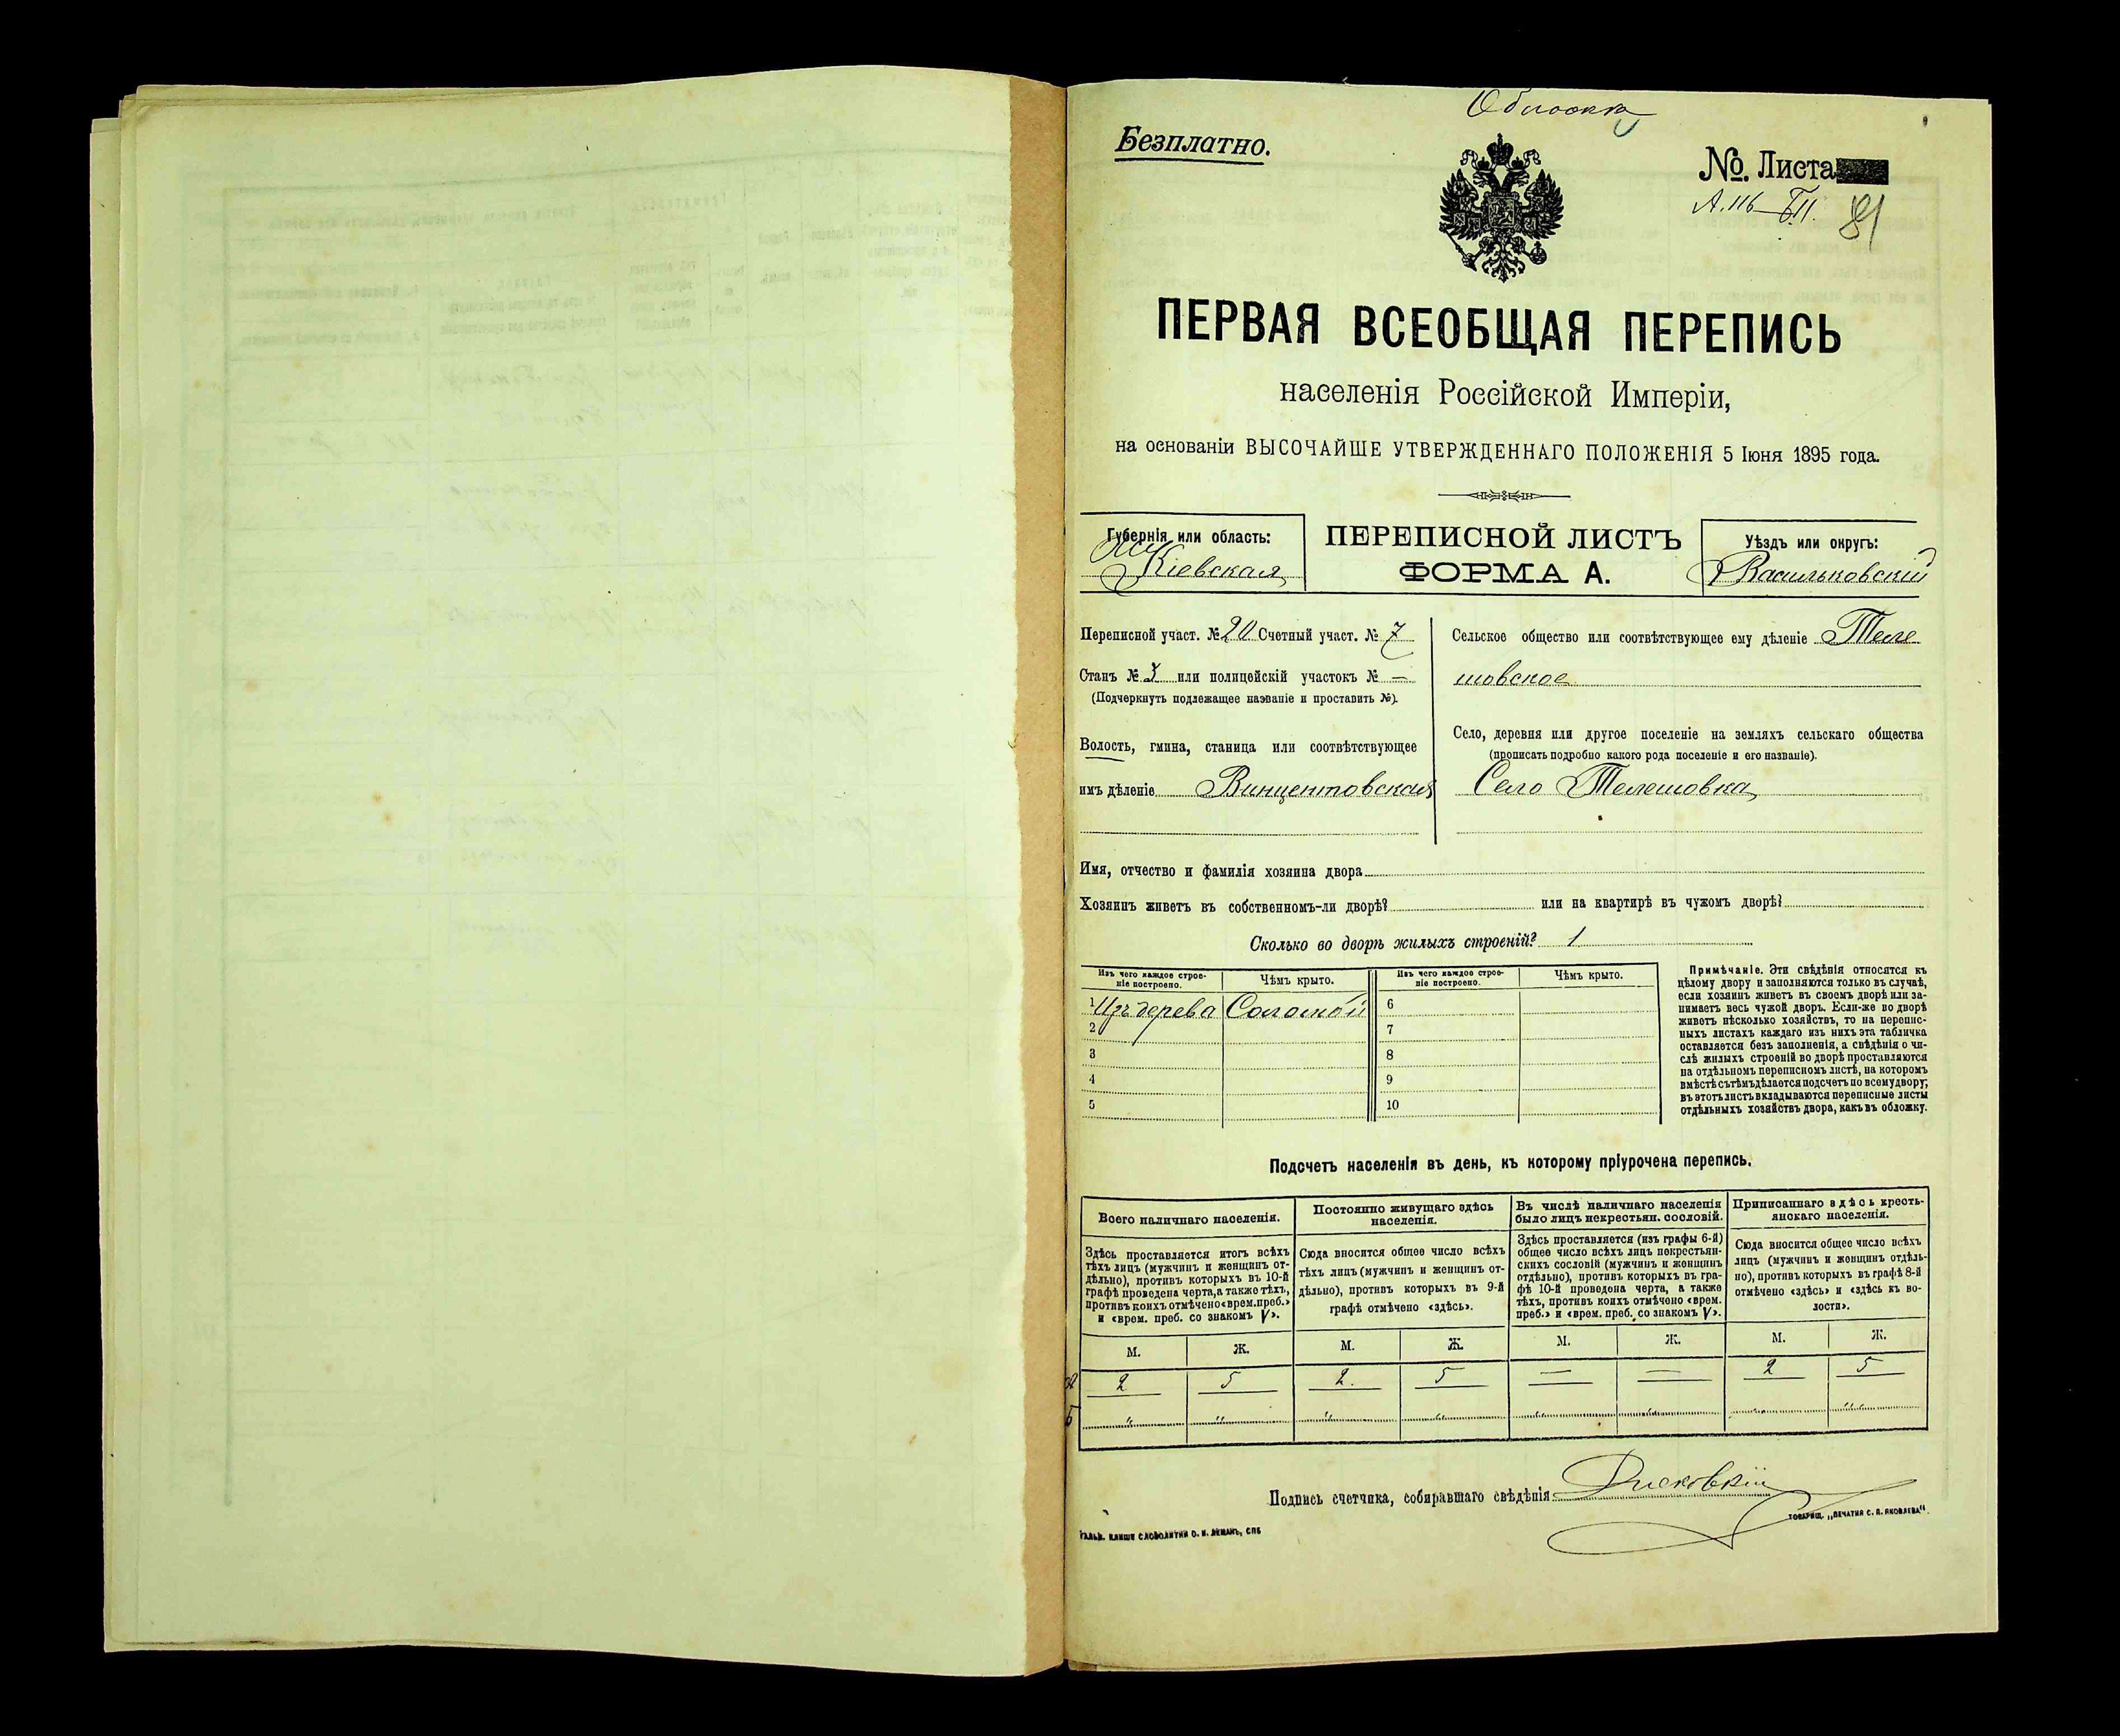 Обложка
Безплатно.
№. Листа
А. 116 — Б 11. 81
ПЕРВАЯ ВСЕОБЩАЯ ПЕРЕПИСЬ
населенія Россійской Имперіи,
на основаніи ВЫСОЧАЙШЕ УТВЕРЖДЕННАГО ПОЛОЖЕНІЯ 5 Іюня 1895 года.
Губернія или область:
Кіевская
ПЕРЕПИСНОЙ ЛИСТЪ
ФОРМА А.
Уѣздъ или округъ:
Васильковскій
Переписной участ. № 20 Счетный участ. № 7
Станъ № 3 или полицейскій участокъ № —
(Подчеркнуть подлежащее названіе и проставить №).
Волость, гмина, станица или соотвѣтствующее
имъ дѣленіе Винцентовская
Сельское общество или соотвѣтствующее ему дѣленіе Теле
шовское
Село, деревня или другое поселеніе на земляхъ сельскаго общества
(прописать подробно какого рода поселеніе и его названіе).
Село Телешовка
Имя, отчество и фамилія хозяина двора
Хозяинъ живетъ въ собственномъ-ли дворѣ? или на квартирѣ въ чужомъ дворѣ?
Сколько во дворѣ жилыхъ строеній? 1
Изъ чего каждое строе-
ніе построено.
Чѣмъ крыто.
Изъ чего каждое строе-
ніе построено.
Чѣмъ крыто.
1 Изъ дерева Соломой 6
2 7
3 8
4 9
5 10
Примѣчаніе. Эти свѣдѣнія относятся къ
цѣлому двору и заполняются только въ случаѣ,
если хозяинъ живетъ въ своемъ дворѣ или за-
нимаетъ весь чужой дворъ. Если-же во дворѣ
живетъ нѣсколько хозяйствъ, то на перепис-
ныхъ листахъ каждаго изъ нихъ эта табличка
оставляется безъ заполненія, а свѣдѣнія о чи-
слѣ жилыхъ строеній во дворѣ проставляются
на отдѣльномъ переписномъ листѣ, на которомъ
вмѣстѣ съ тѣмъ дѣлается подсчетъ по всему двору;
въ этотъ листъ вкладываются переписные листы
отдѣльныхъ хозяйствъ двора, какъ въ обложку.
Подсчетъ населенія въ день, къ которому пріурочена перепись.
Всего наличнаго населенія.
Здѣсь проставляется итогъ всѣхъ
тѣхъ лицъ (мужчинъ и женщинъ от-
дѣльно), противъ которыхъ въ 10-й
графѣ проведена черта, а также тѣхъ,
противъ коихъ отмѣчено «врем. преб.»
и «врем. преб. со знакомъ V».
Постоянно живущаго здѣсь
населенія.
Сюда вносится общее число всѣхъ
тѣхъ лицъ (мужчинъ и женщинъ от-
дѣльно), противъ которыхъ въ 9-й
графѣ отмѣчено «здѣсь».
Въ числѣ наличнаго населенія
было лицъ некрестьян. сословій.
Здѣсь проставляется (изъ графы 6-й)
общее число всѣхъ лицъ некрестьян-
скихъ сословій (мужчинъ и женщинъ
отдѣльно), противъ которыхъ въ гра-
фѣ 10-й проведена черта, а также
тѣхъ, противъ коихъ отмѣчено «врем.
преб.» и «врем. преб. со знакомъ V».
Приписаннаго здѣсь кресть-
янскаго населенія.
Сюда вносится общее число всѣхъ
лицъ (мужчинъ и женщинъ отдѣль-
но), противъ которыхъ въ графѣ 8-й
отмѣчено «здѣсь» и «здѣсь къ во-
лости».
М. Ж. М. Ж. М. Ж. М. Ж.
А 2 5 2. 5 — — 2 5
Б " " " " " " " "
Подпись счетчика, собиравшаго свѣдѣнія
ГАЛЬВ. КЛИШЕ СЛОВОЛИТНИ О. И. ЛЕМАНЪ, СПБ
ТОВАРИЩ. „ПЕЧАТНЯ С. П. ЯКОВЛЕВА“.